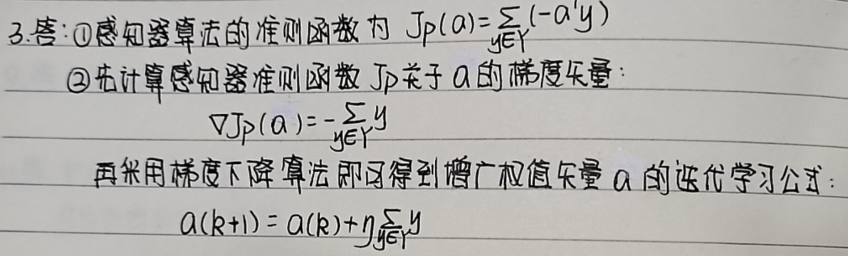 3.答:①感知器算法的准则函数为 Jp(a)=∑(-a'y)
y∈Y
②先计算感知器准则函数 Jp关于 a 的梯度矢量:
∇Jp(a)=-∑y
y∈Y
再采用梯度下降算法即可得到增广权值矢量 a 的迭代学习公式:
a(k+1)=a(k)+η∑y
y∈Y